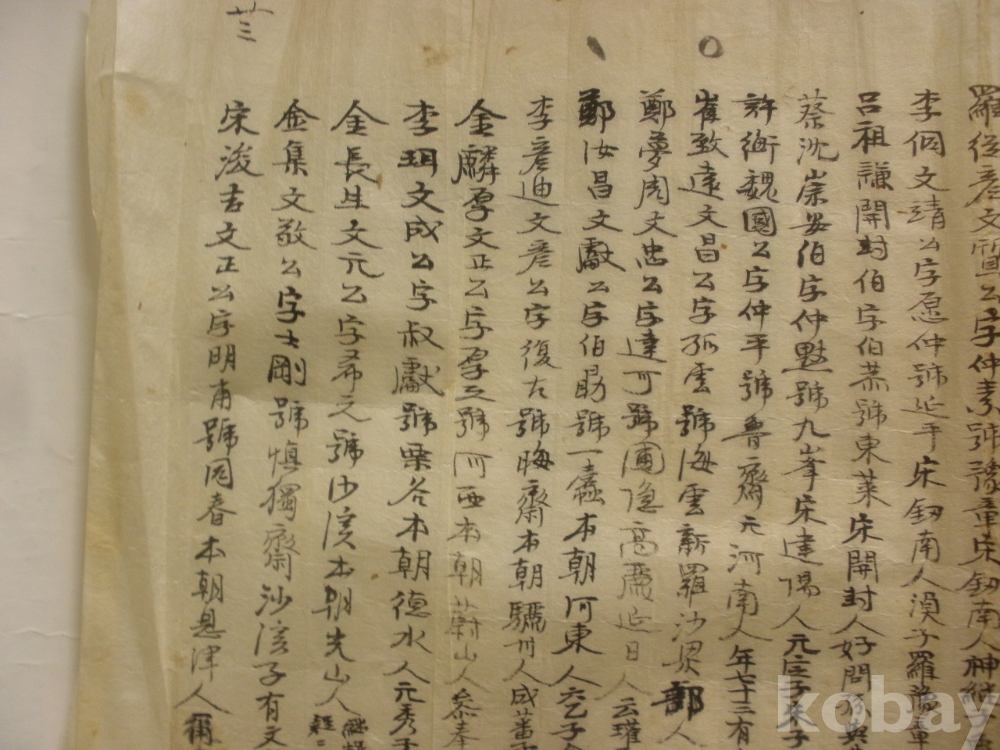 羅從彦文質公字仲素號豫章宋劒南人神
李侗文靖公字愿仲號延平宋劒南人湏子羅豫章
呂祖謙開封伯字伯恭號東萊宋開封人好問孫
蔡沈崇安伯字仲黙號九峯宋建陽人元定子朱子
許衡魏國公字仲平號魯齋元河南人年七十三有
崔致遠文昌公字孤雲號海雲新羅沙梁部人
鄭夢周文忠公字達可號圃隐高麗延日人云瓘
鄭汝昌文獻公字伯勗號一蠹本朝河東人六乙子
李彦迪文彦公字復古號晦齋本朝驪州人成蕃子
金麟厚文正公字厚之號河西本朝蔚山人叅奉
李珥文成公字叔獻號栗谷本朝德水人元秀子
金長生文元公字希元號沙溪本朝光山人繼
金集文敬公字士剛號愼獨齋沙溪子有文
宋浚吉文正公字明甫號同春本朝恩津人爾
卄三
kobay